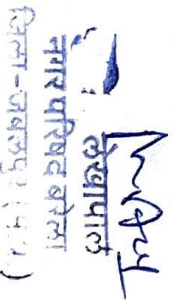 लेखापाल
नगर परिषद बरेला
जिला-जबलपुर (म.प्र.)